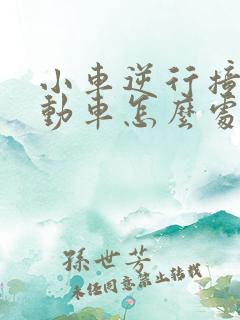 小車逆行撞
動車怎麼處
孫世芳
未经同意禁止转载